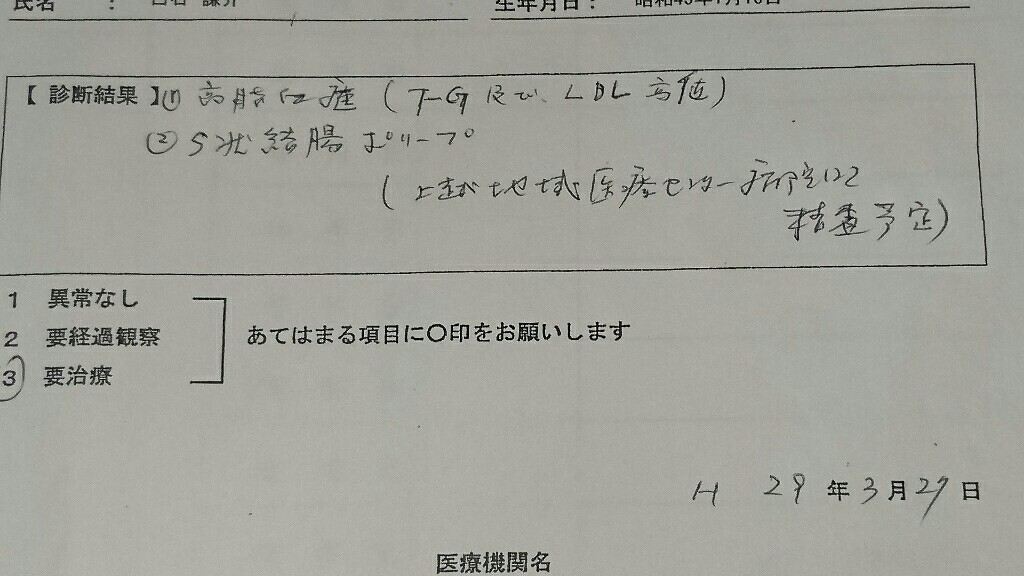 氏名 :
生年月日: 昭和45年1月10日
【 診断結果 】① 高脂血症 (T-G 及び、LDL 高値)
② S状結腸 ポリープ
(上越地域医療センター病院にて
精査予定)
1 異常なし
2 要経過観察
3 要治療
あてはまる項目に〇印をお願いします
H 29 年 3 月 27 日
医療機関名